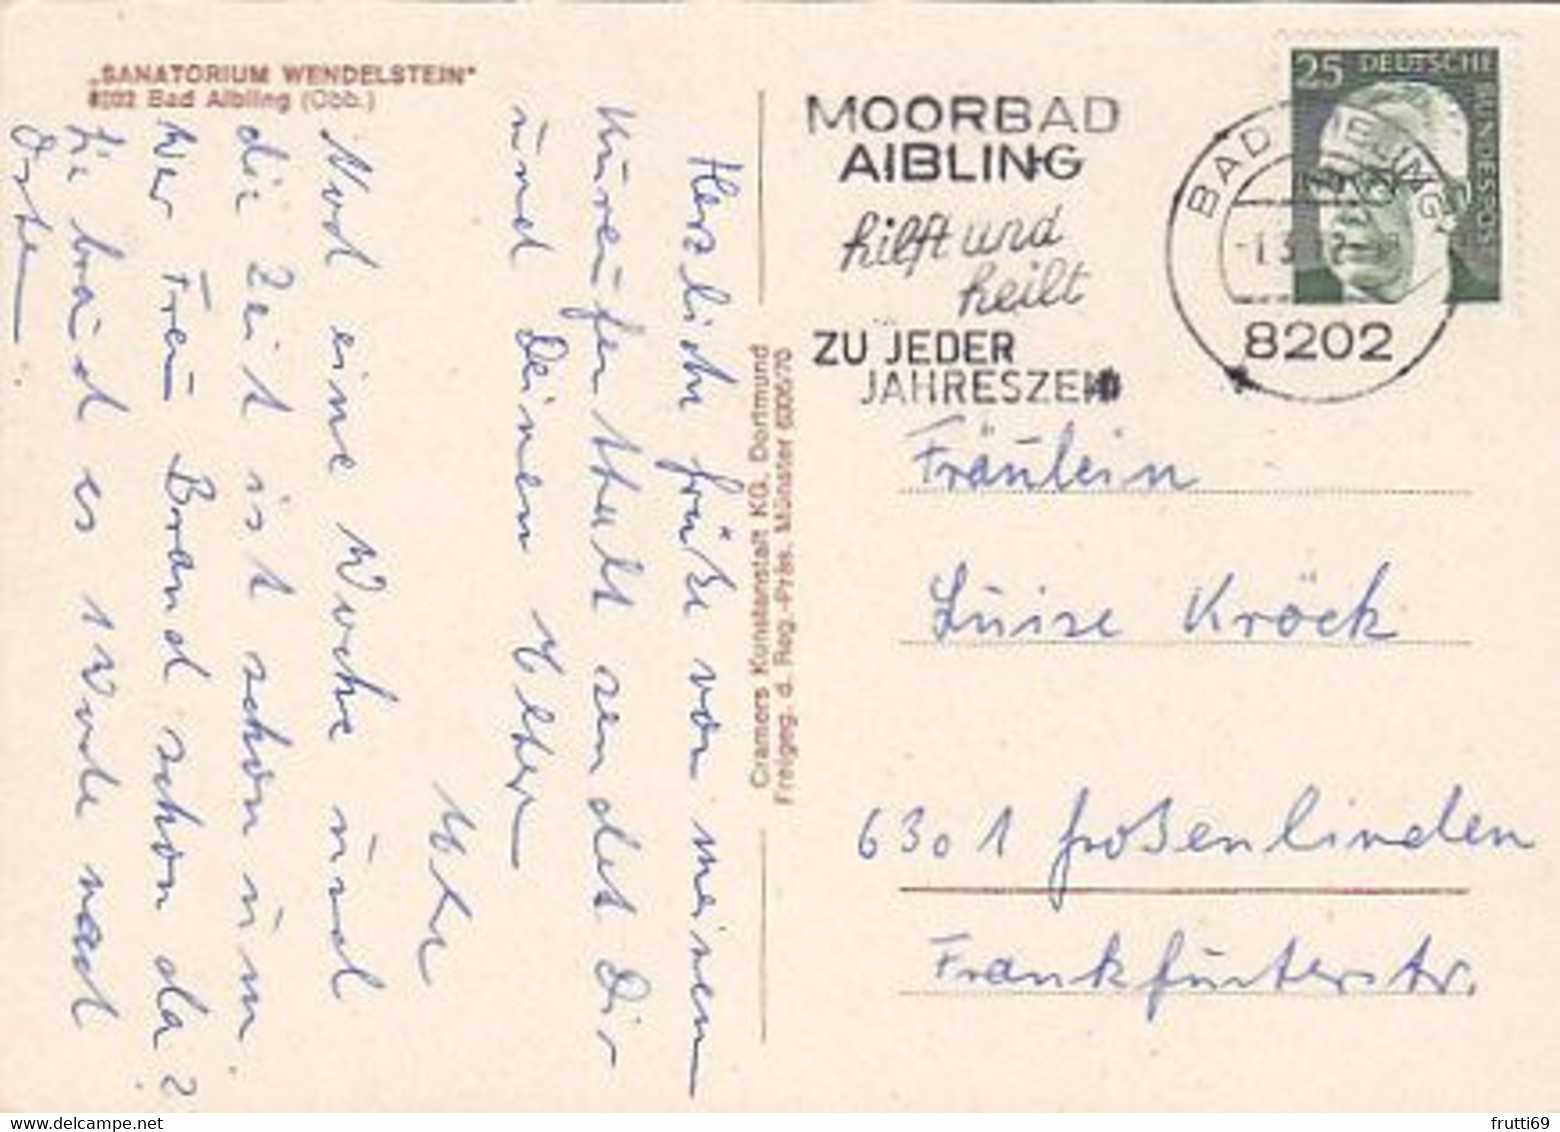 „SANATORIUM WENDELSTEIN"
8202 Bad Aibling (Obb.)
Herzliche Grüße von meinem
Kuraufenthalt sendet Dir
und Deinen Eltern
Noch eine Woche und
die Zeit ist schon um.
War Frau Brand schon da?
Sie braucht es 1 Woche nach
Ostern
Cramers Kunstanstalt KG. Dortmund
Freigeg. d. Reg.-Präs. Münster
MOORBAD
AIBLING
hilft und
heilt
ZU JEDER
JAHRESZEIT
BAD AIBLING
8202
25 DEUTSCHE
BUNDESPOST
Fräulein
Luise Kröck
6301 Großenlinden
Frankfurterstr.
frutti69